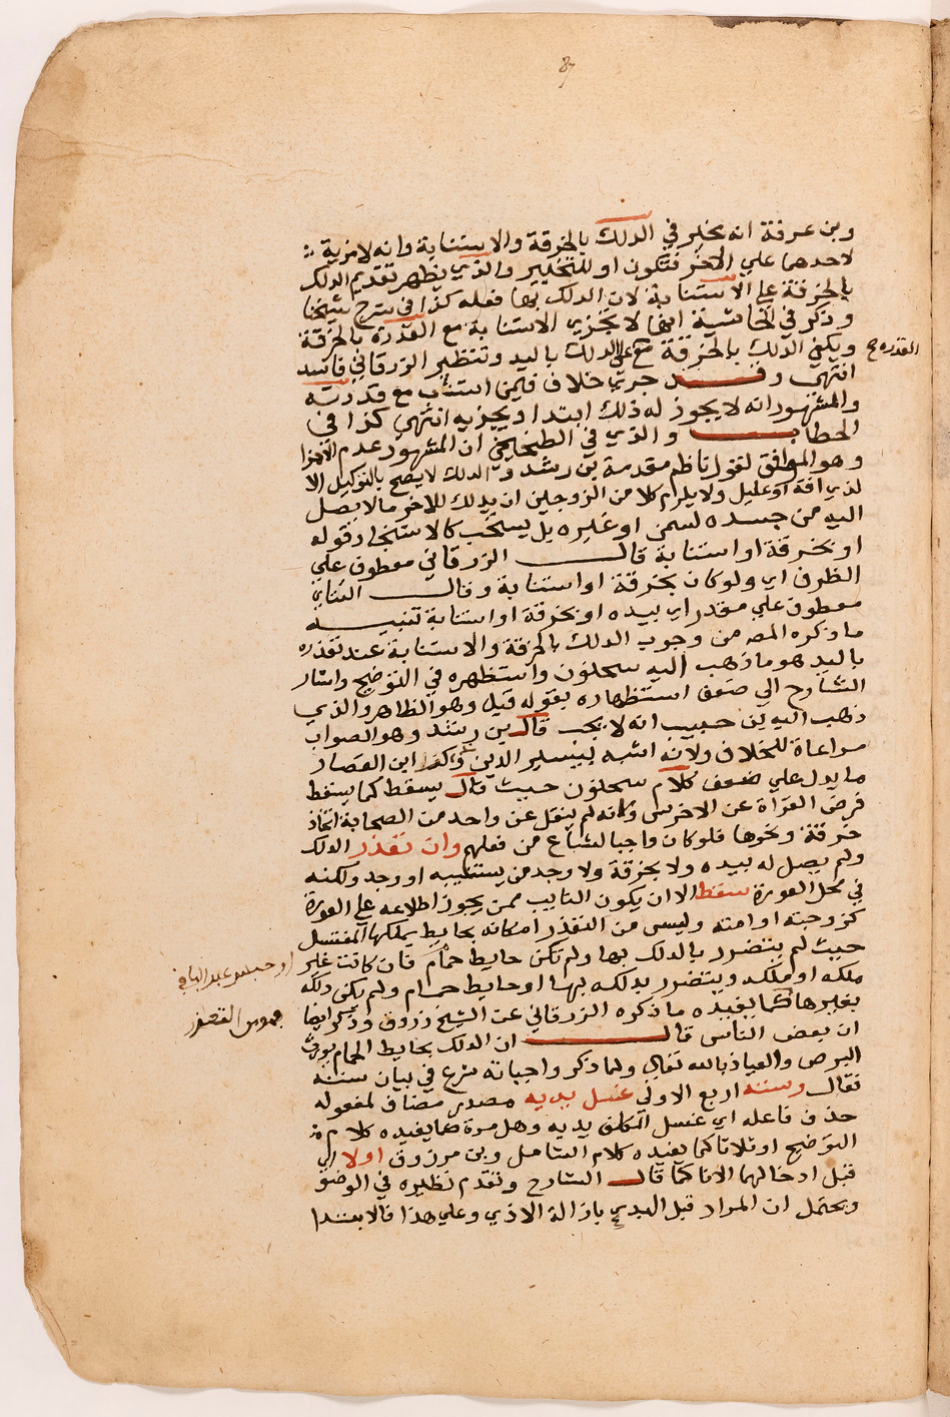 87
وبن عرفة انه يخير في الدلك بالخرقة والاستنابة وانه لا مزية
لاحدهما علي الاخر فتكون او للتخيير والذي يظهر تقديم الدلك
بالخرقة علي الاستنابة لان الدلك بها فعله كذا في شرح شيخنا
وذكر في الحاشية ايضا لا تجزي الاستنابة مع القدرة بالخرقة
ويكفي الدلك بالخرقة مع علي الدلك باليد وتنظير الزرقاني فاسد
القدره صح
انتهي وقد جري خلاف فيمن استناب مع قدرته
والمشهور انه لا يجوز له ذلك ابتدا ويجزيه انتهي كذا في
الحطاب والذي في الطخيخي ان المشهور عدم الاجزا
وهو الموافق لقول ناظم مقدمة بن رشد والدلك لا يصح بالتوكيل الا
لذي افة او عليل ولا يلزم كلا من الزوجين ان يدلك للاخر ما لا يصل
اليه من جسده لسمن او غيره بل يستحب كالاستنجا وقوله
او بخرقة او استنابة قال الزرقاني معطوف علي
الظرف اي ولو كان بخرقة او استنابة وقال التتاي
معطوف علي مقدر اي بيده او بخرقة او استنابة تنبيه
ما ذكره المص من وجوب الدلك بالخرقة والاستنابة عند تعذره
باليد هو ما ذهب اليه سحنون واستظهره في التوضيح واشار
الشارح الي ضعف استظهاره بقوله قيل وهو الظاهر والذي
ذهب اليه بن حبيب انه لا يجب قال بن رشد وهو الصواب
مراعاة للخلاف ولانه اشبه بيسير الدين وذكر ابن القصار
ما يدل علي ضعف كلام سحنون حيث قال يسقط كما يسقط
فرض القراة عن الاخرس وكانه لم ينقل عن واحد من الصحابة اتخاذ
خرقة ونحوها فلو كان واجبا لشاع من فعلهم وان تعذر الدلك
ولم يصل له بيده ولا بخرقة ولا وجد من يستنيبه او وجد ولكنه
في محل العورة سقط الا ان يكون النايب ممن يجوز اطلاعه علي العورة
كزوجته او امته وليس من التعذر امكانه بحايط يملكها المغتسل
حيث لم يتضرر بالدلك بها ولم تكن حايط حمام فان كانت غير
ملكه او ملكه ويتضرر بدلكه بها او حايط حمام ولم يكن دلكه
بغيرها كما يفيده ما ذكره الزرقاني عن الشيخ زروق وذكر ايضا
ان بعض الناس قال ان الدلك بحايط الحمام يورث
البرص والعياذ بالله تعالي ولما ذكر واجباته شرع في بيان سننه
فقال وسننه اربع الاولي غسل يديه مصدر مضاف لمفعوله
حذف فاعله اي غسل المكلف يديه وهل مرة كما يفيده كلام
التوضيح او ثلاثا كما يفيده كلام الشامل وبن مرزوق اولا اي
قبل ادخالهما الانا كما قال الشارح وتقدم نظيره في الوضو
ويحتمل ان المراد قبل البدي بازالة الاذي وعلي هذا فالابتدا